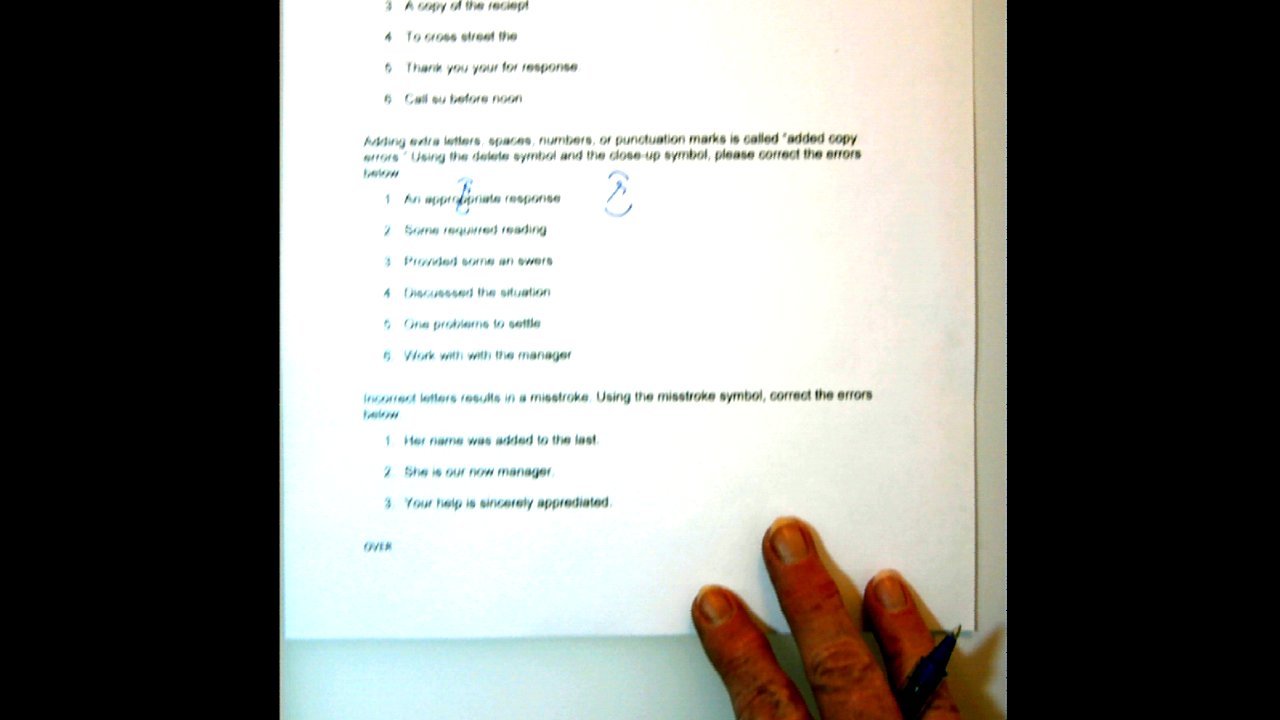 3 A copy of the reciept
4 To cross street the
5 Thank you your for response
6 Call su before noon
Adding extra letters, spaces, numbers, or punctuation marks is called "added copy
errors." Using the delete symbol and the close-up symbol, please correct the errors
below
1 An approopriate response
2 Some requirred reading
3 Provided some an swers
4 Discusssed the situation
5 One problems to settle
6 Work with with the manager
Incorrect letters results in a misstroke. Using the misstroke symbol, correct the errors
below
1 Her name was added to the last.
2 She is our now manager.
3 Your help is sincerely apprediated.
OVER